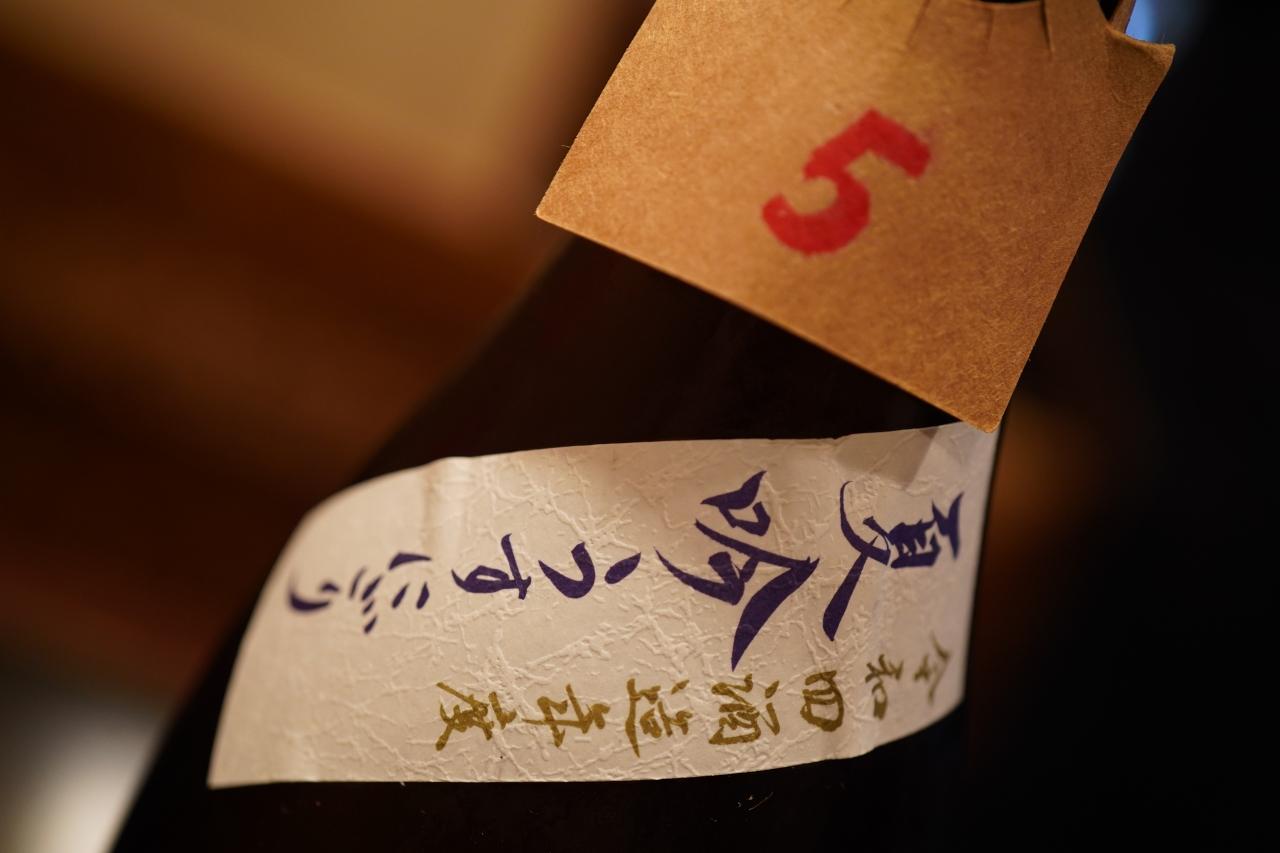 5
夏吟うすにごり
令和四酒造年度